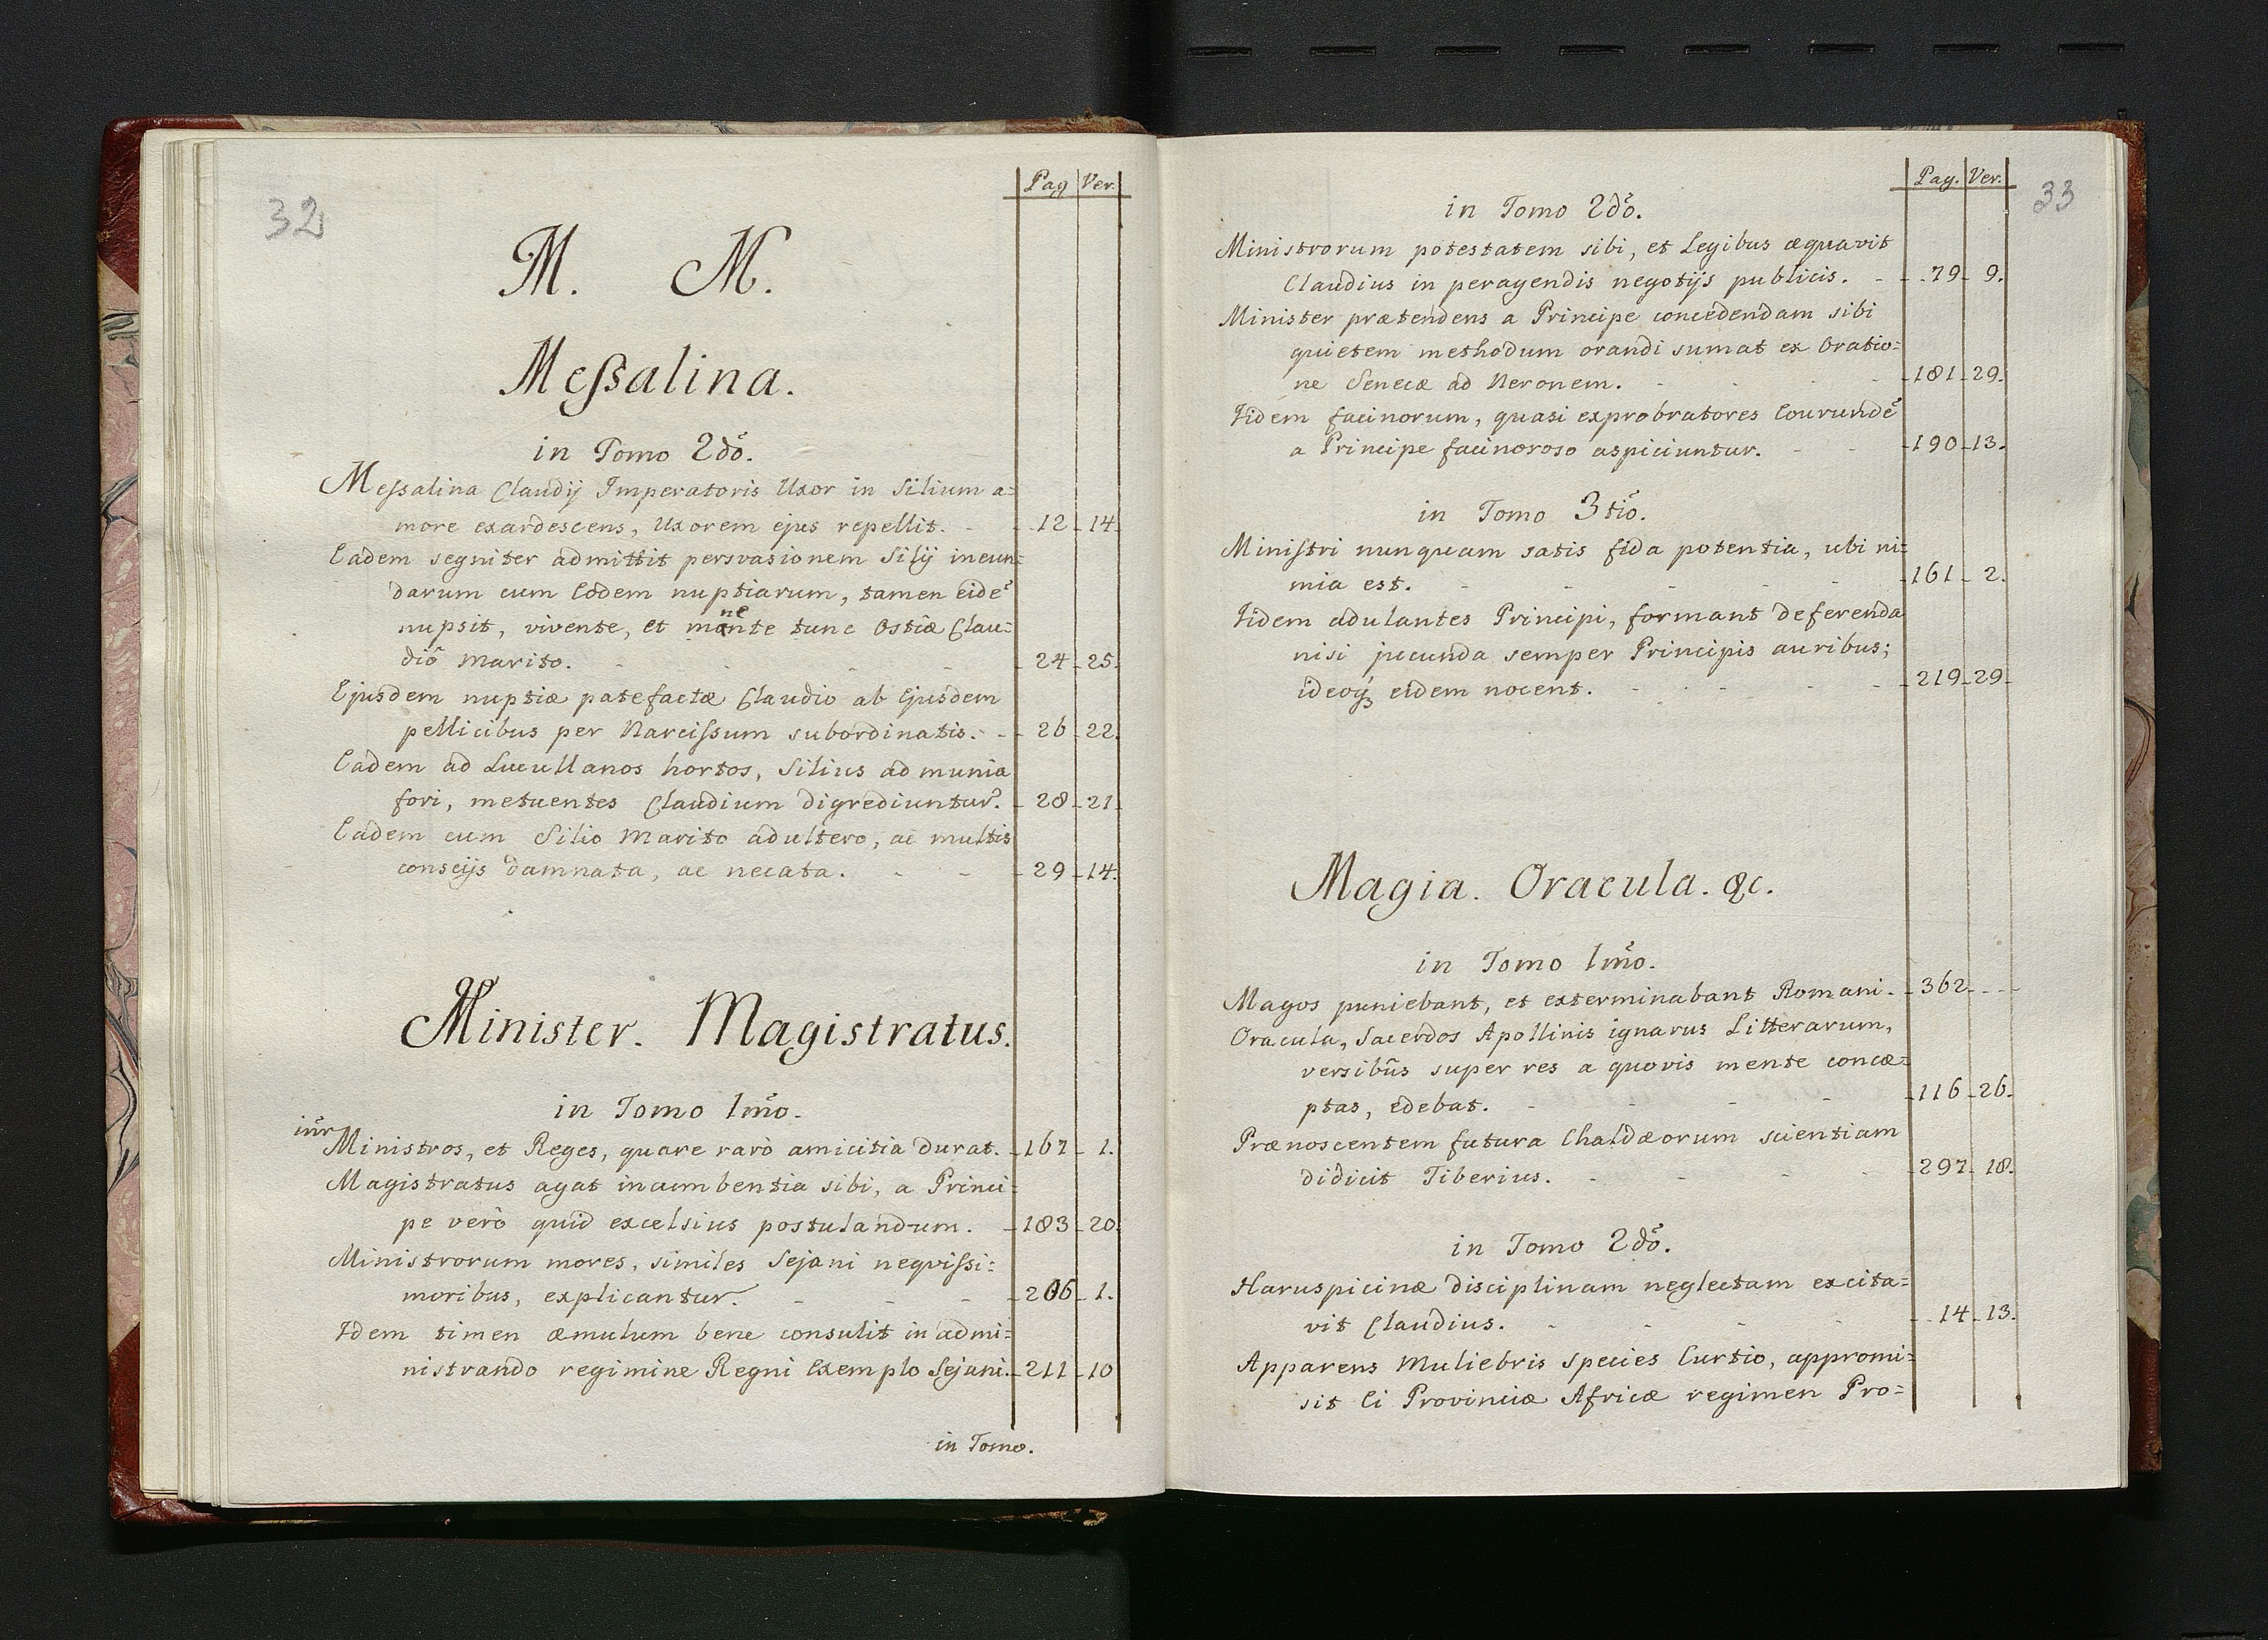 32
Pag Ver.
M. M.
Meſsalina.
in Tomo 2dõ.
Meſsalina Claudij Imperatoris Uxor in Silium a=
more exardescens, Uxorem ejus repellit. - 12 - 14.
Eadem segniter admittit persvasionem Silij ineun=
darum cum Eodem nuptiarum, tamen eidẽ
nupsit, vivente, et manente tunc Ostiæ Clau=
diô Marito. - 24 - 25.
Ejusdem nuptiæ patefactæ Claudio ab Ejusdem
pellicibus per Narciſsum subordinatis. - 26 - 22.
Eadem ad Lucullanos hortos, Silius ad munia
fori, metuentes Claudium digrediuntur. - 28 - 21.
Eadem cum Silio Marito adultero, ac multis
conscijs damnata, ac necata. - 29 - 14.
Minister. Magistratus.
in Tomo 1mõ.
inũr Ministros, et Reges, quare rarò amicitia durat. - 167 - 1.
Magistratus agat incumbentia sibi, a Princi=
pe verò quid excelsius postulandum. - 183 - 20.
Ministrorum mores, similes Sejani neqviſsi=
moribus, explicantur. - 206 - 1.
Idem timen æmulum bene consulit in admi=
nistrando regimine Regni Exemplo Sejani. - 211 - 10
in Tomo.
33
Pag. Ver.
in Tomo 2dõ.
Ministrorum potestatem sibi, et Legibus æquavit
Claudius in peragendis negotijs publicis. - 79 - 9.
Minister prætendens a Principe concedendam sibi
quietem methodum orandi sumat ex Oratio=
ne Senecæ ad Neronem. - 181 - 29.
Iidem facinorum, quasi exprobratores Eorundẽ
a Principe facinoroso aspiciuntur. - 190 - 13.
in Tomo 3tiõ.
Miniſtri nunquam satis fida potentia, ubi ni=
mia est. - 161 - 2.
Iidem adulantes Principi, formant deferenda
nisi jucunda semper Principis auribus;
ideoq; eidem nocent. - 219 - 29.
Magia. Oracula. &c.
in Tomo 1mõ.
Magos puniebant, et exterminabant Romani. - 362 - - -
Oracula, Sacerdos Apollinis ignarus Litterarum,
versibũs super res a quovis mente concæ=
ptas, edebat. - 116 - 26.
Prænoscentem futura Chaldæorum scientiam
didicit Tiberius. - 297 - 18.
in Tomo 2dõ.
Haruspicinæ disciplinam neglectam excita=
vit Claudius. - 14 - 13.
Apparens Muliebris species Curtio, appromi=
sit Ei Provinciæ Africæ regimen Pro=